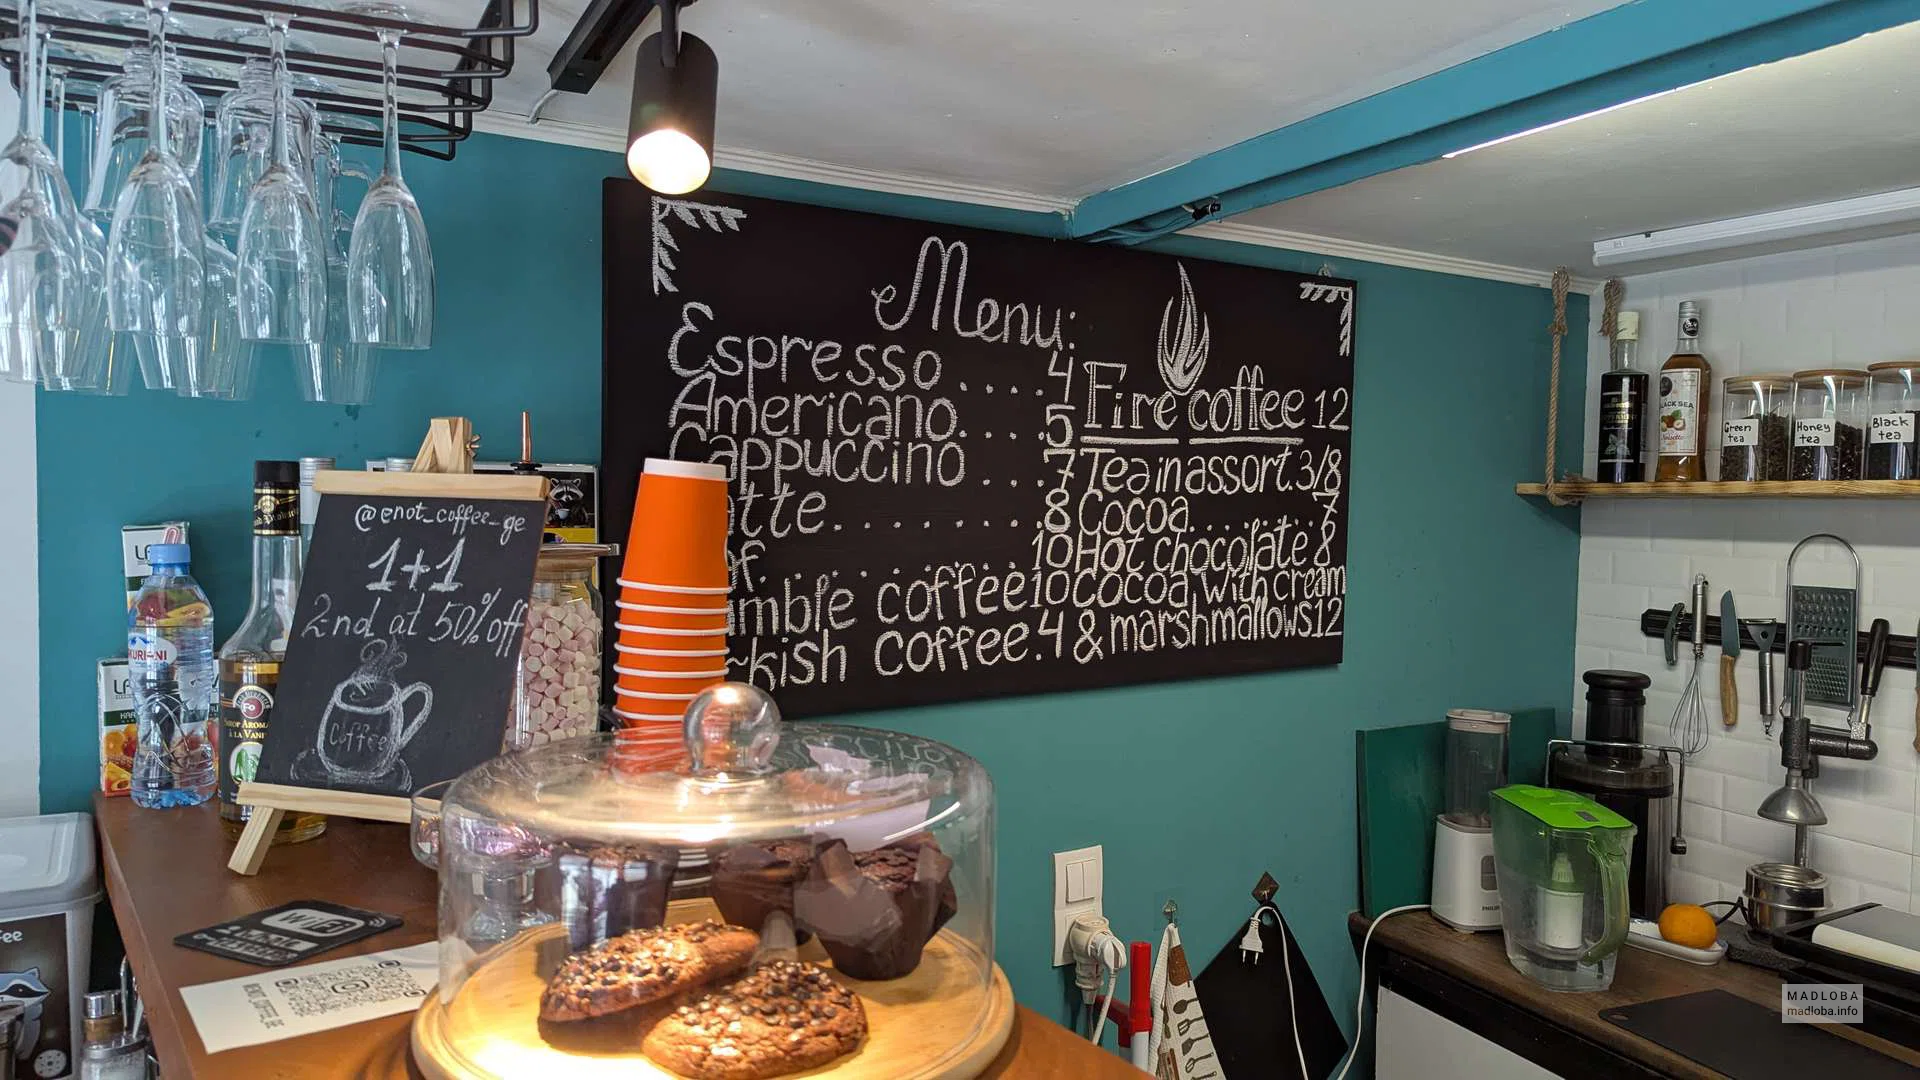 Menu:
Espresso .... 4
Americano.... 5
Cappuccino ... 7
tte........ 8
f.......... 10
mble coffee 10
kish coffee. 4
Fire coffee 12
Tea in assort. 3/8
Cocoa....... 7
6
Hot chocolate 8
Cocoa with cream
& marshmallows 12
@enot_coffee_ge
1+1
2-nd at 50% off
Coffee
Green tea
Honey tea
Black tea
BLACK SEA
WiFi
MADLOBA
madloba.info